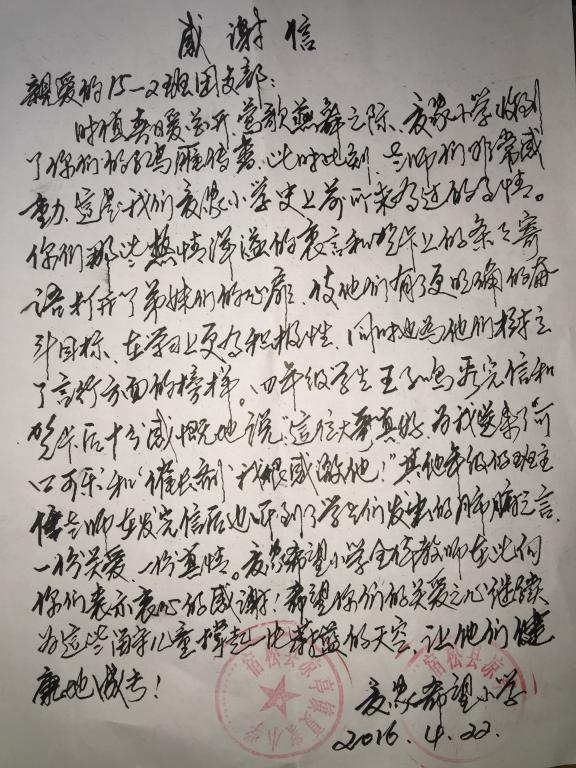 感谢信
親爱的15-2班团支部：
时值春暖花开、莺歌燕舞之际、夏家小学收到
了你们的鸿雁传书、此时此刻、老师们非常感
動、这是我们夏家小学史上前所未有过的事情。
你们那些热情洋溢的衷言和贺卡上的条之寄
语打开了弟妹们的心扉、使他们有了更明确的奋
斗目标、在学习上更有积极性、同时也为他们树立
了言行方面的榜样。四年级学生王子鸣看完信和
贺卡后十分感慨地说："这位大哥真好、为我送来了"可
口可乐"和"催长剂"我很感激他！"其他年级的班主
任老师在发完信后也听到了学生们发出的肺腑之言、
一份关爱、一份真情。夏家希望小学全体教师在此向
你们表示衷心的感谢！希望你们的关爱之心继续
为这些留守儿童撑起一片蔚蓝的天空、让他们健
康地成长！
夏家希望小学
2016.4.22.
宿松县凉亭镇夏家小学
宿松县凉